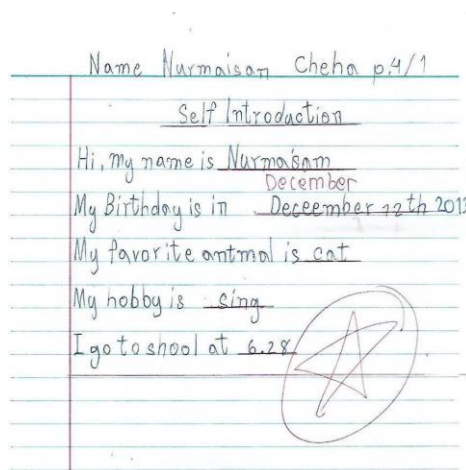 Name Nurmaisan Cheha p.4/1
Self Introduction
Hi, my name is Nurmaisam
December
My Birthday is in Deceember 12th 2013
My favorite antmal is cat
My hobby is sing
I go to shool at 6.28